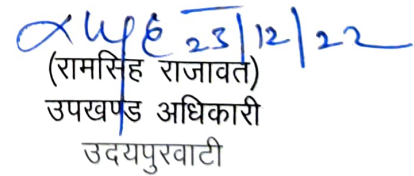 23/12/22
(रामसिंह राजावत)
उपखण्ड अधिकारी
उदयपुरवाटी